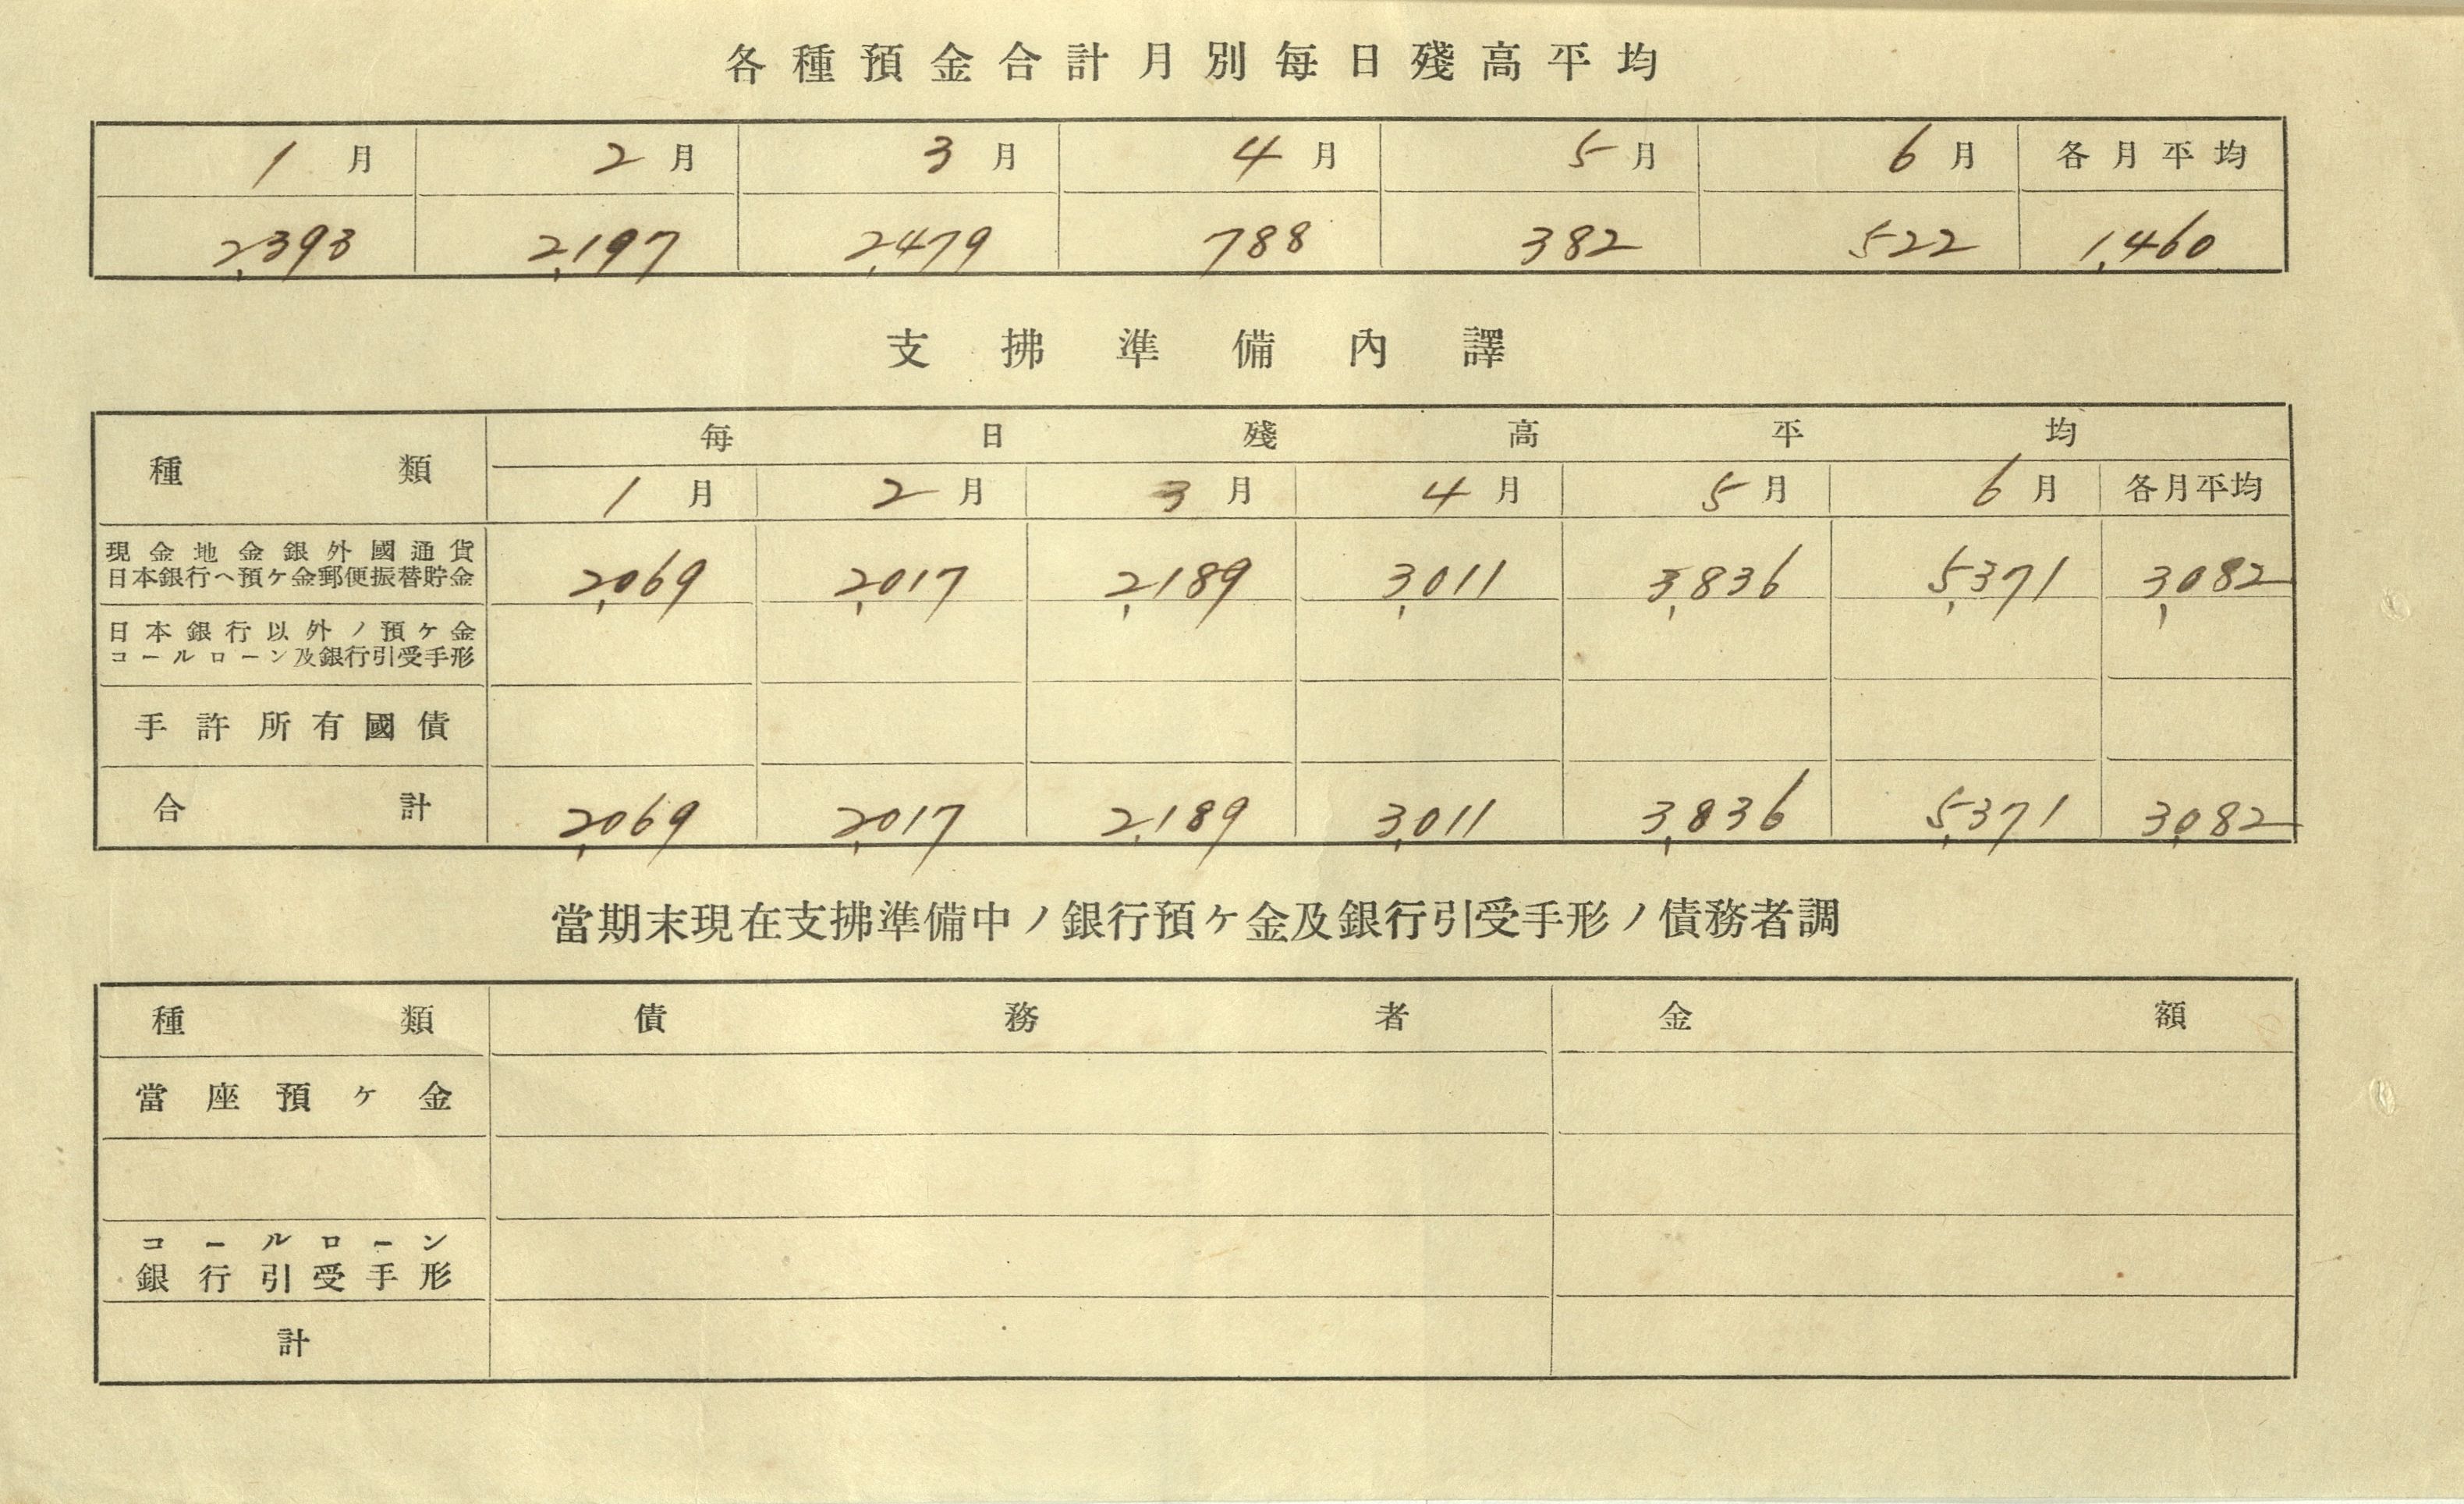 各種預金合計月別每日殘高平均
1月 2月 3月 4月 5月 6月 各月平均
2,393 2,197 2,479 788 382 522 1,460
支拂準備內譯
種類 每日殘高平均
1月 2月 3月 4月 5月 6月 各月平均
現金地金銀外國通貨
日本銀行へ預ケ金郵便振替貯金 2,069 2,017 2,189 3,011 3,836 5,371 3,082
日本銀行以外ノ預ケ金
コールローン及銀行引受手形
手許所有國債
合計 2,069 2,017 2,189 3,011 3,836 5,371 3,082
當期末現在支拂準備中ノ銀行預ケ金及銀行引受手形ノ債務者調
種類 債務者 金額
當座預ケ金
コールローン
銀行引受手形
計